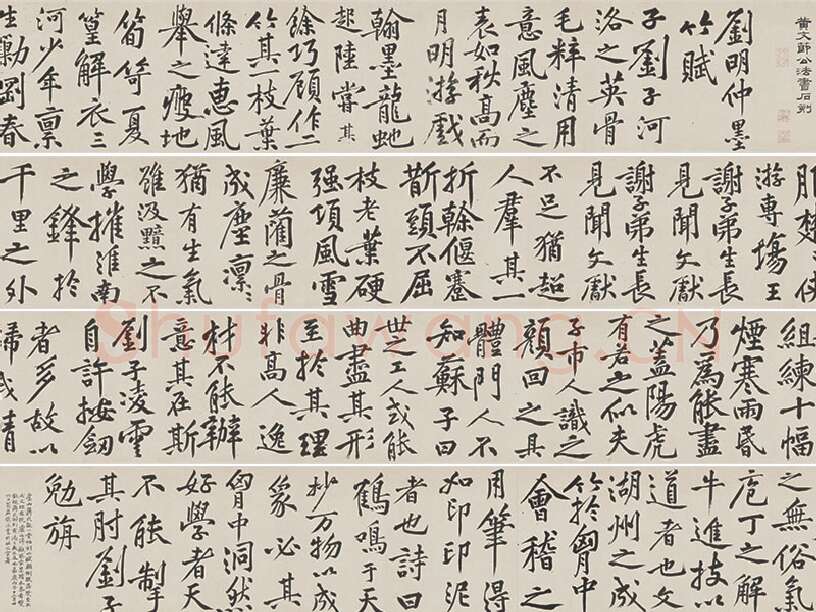 黄文節公法書石刻
劉明仲墨
竹賦
子劉子河
洛之英骨
毛粹清用
意風塵之
表如秋高而
月明游戲
翰墨龍虵
起陸嘗其
餘巧顧作二
竹其一枝葉
條達惠風
舉之瘦地
筍笴夏
篁解衣三
河少年禀
生勁剛春
服楚〻俠
游專塲王
謝子弟生長
見聞文獻
謝子弟生長
見聞文獻
不足猶超
人羣其一
折榦偃蹇
斮頭不屈
枝老葉硬
强項風雪
廉藺之骨
成塵凛〻
猶有生氣
雖汲黯之不
學摧淮南
之鋒於
千里之外
組練十幅
煙寒雨昏
乃爲能盡
之蓋陽虎
有若之似夫
子市人識之
顔回之具
體門人不
知蘇子曰
世之工人或能
曲盡其形
至於其理
非高人逸
材不能辦
意其在斯
劉子凌雲
自許按劒
者多故以
歸我請
之無俗氣
庖丁之解
牛進技以
道者也文
湖州之成
竹於胷中
會稽之
用筆得
如印印泥
者也詩曰
鶴鳴于天
妙万物以成
象必其
胷中洞然
好學者天
不能掣
其肘劉子
勉旃
Shufawang.CN